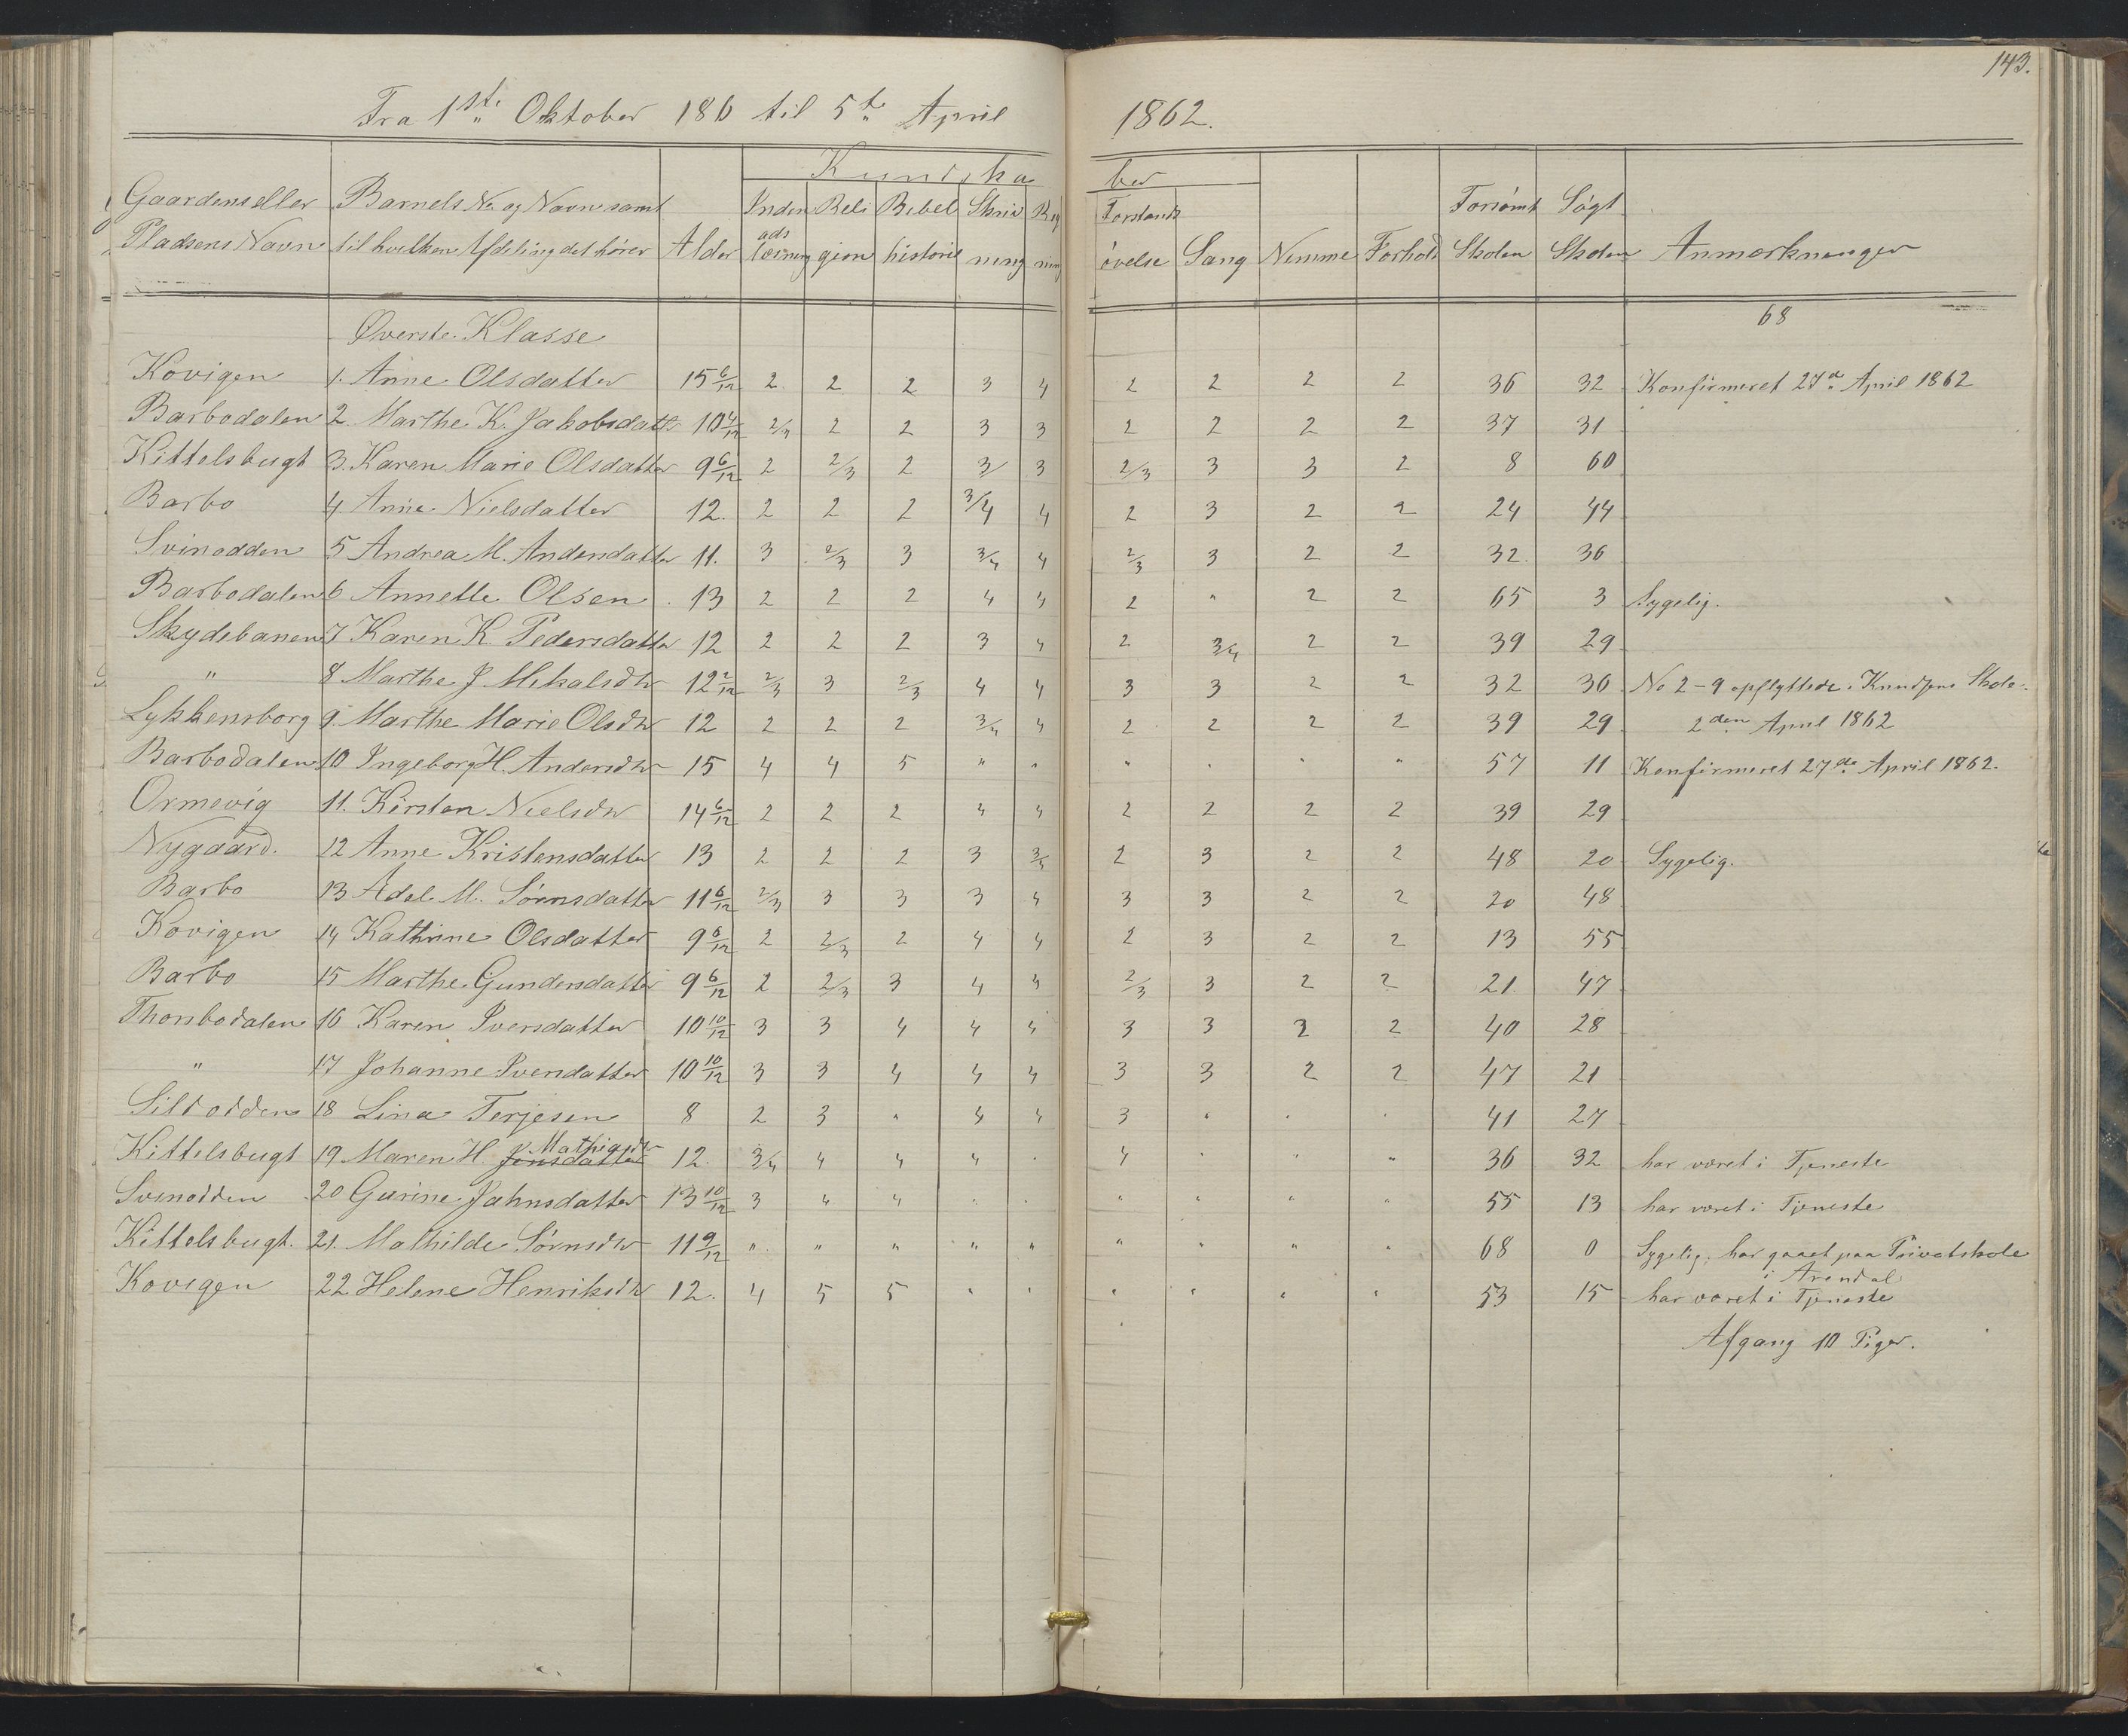 143.
Fra 1ste Oktober 186 til 5te April 1862.
Kundska ber
Gaardens eller Barnets No og Navn samt Inden Reli Bibel Skriv Reg Forstands Forsømt Søgt
Pladsens Navn til hvilken Afdeling det hører Alder ads læsning gion historie ning ning øvelse Sang Nemme Forhold Skolen Skolen Anmerkninger
Øverste Klasse 68
Kovigen 1. Anne Olsdatter 15 6/12 2 2 2 3 4 2 2 2 2 36 32 Konfirmeret 27de April 1862
Barbodalen 2 Marthe K. Jakobsdatt 10 4/12 2/3 2 2 3 3 2 2 2 2 37 31
Kittelsbugt 3. Karen Marie Olsdatter 9 6/12 2 2/3 2 3/ 3 2/3 3 3 2 8 60
Barbo 4. Anne Nielsdatter 12. 2 2 2 3/4 4 2 3 2 2 24 44
Svinodden 5 Andrea M. Andersdatter 11. 3 2/3 3 3/4 4 2/3 3 2 2 32. 36
Barbodalen 6 Annette Olsen 13 2 2 2 4 4 2 " 2 2 65 3 Sygelig.
Skydebanen 7 Karen K. Pedersdatter 12 2 2 2 3 4 2 3/4 2 2 39 29
" 8 Marthe J Mikalsdtr 12 2/12 2/3 3 2/3 4 4 3 3 2 2 32 36 No 2-9 opflyttede i Knudsens Skole.
Lykkensborg 9. Marthe Marie Olsdtr 12 2 2 2 3/4 4 2 2 2 2 39 29 2den April 1862
Barbodalen 10 Ingeborg H. Andersdtr 15 4 4 5 " " " " " " 57 11 Konfirmeret 27de April 1862.
Ormevig 11. Kirsten Nielsdtr 14 6/12 2 2 2 4 4 2 2 2 2 39 29
Nygaard. 12 Anne Kristensdatter 13 2 2 2 3 3/4 2 3 2 2 48 20 Sygelig.
Barbo 13 Adel M. Sørensdatter 11 6/12 2/3 3 3 3 4 3 3 2 2 20 48
Kovigen 14 Kathrine Olsdatter 9 6/12 2 2/3 2 4 4 2 3 2 2 13 55
Barbo 15 Marthe Gundersdatter 9 6/12 2 2/3 3 4 4 2/3 3 2 2 21. 47
Thorsbodalen 16 Karen Iversdatter 10 10/12 3 3 4 4 4 3 3 2 2 40 28
" 17 Johanne Svendatter 10 10/12 3 3 4 4 4 3 3 2 2 47 21
Sildodden 18 Lina Terjesen 8 2 3 " 4 4 3 " " " 41 27
Kittelsbugt 19 Maren H. Jensdatter Mathiasdtr 12. 3/4 4 4 4 " 4 " " " 36 32 har været i Tjeneste
Svinodden 20 Gurine Jahnsdatter 13 10/12 3 4 4 " " " " " " 55 13 har været i Tjeneste
Kittelsbugt. 21. Mathilde Sørnsdtr 11 9/12 " " " " " " " " " 68 0 Sygelig, har gaaet paa Privatskole
i Arendal
Kovigen 22 Helene Henriksdtr 12. 4 5 5 " " " " " " 53 15 har været i Tjeneste
Afgang 10 Piger.